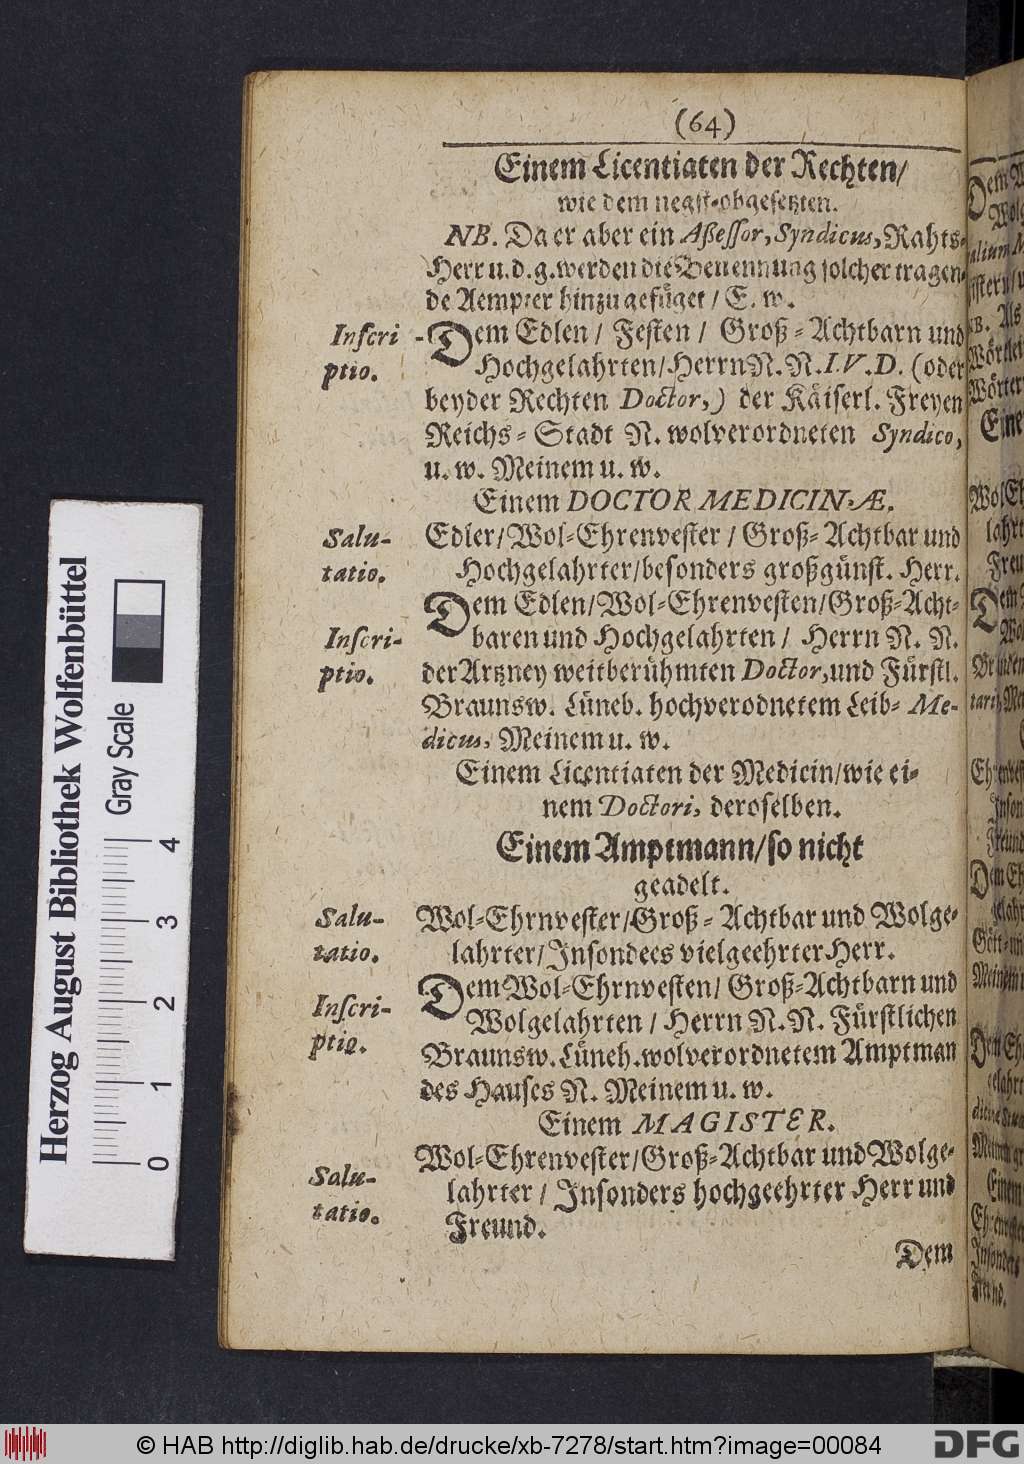 (64)
Einem Licentiaten der Rechten/
wie dem negst-obgesetzten.
NB. Da er aber ein Aßessor, Syndicus, Rahts-
Herr u. d. g. werden die Benennung solcher tragen-
de Aempter hinzu gefüget / E. w.
Inscri-
ptio.
Dem Edlen / Festen / Groß-Achtbarn und
Hochgelahrten/Herrn N. N. I. V. D. (oder
beyder Rechten Doctor,) der Käiserl. Freyen
Reichs-Stadt N. wolverordneten Syndico,
u. w. Meinem u. w.
Einem DOCTOR MEDICINÆ.
Salu-
tatio.
Edler/Wol-Ehrenvester / Groß-Achtbar und
Hochgelahrter/besonders großgünst. Herr.
Inscri-
ptio.
Dem Edlen/Wol-Ehrenvesten/Groß-Acht-
baren und Hochgelahrten / Herrn N. N.
der Artzney weitberühmten Doctor, und Fürstl.
Braunsw. Lüneb. hochverodnetem Leib-Me-
dicus, Meinem u. w.
Einem Licentiaten der Medicin/wie ei-
nem Doctori, deroselben.
Einem Amptmann/so nicht
geadelt.
Salu-
tatio.
Wol-Ehrnvester/Groß-Achtbar und Wolge-
lahrter/Insondees vielgeehrter Herr.
Inscri-
ptio.
Dem Wol-Ehrnvesten/ Groß-Achtbarn und
Wolgelahrten / Herrn N. N. Fürstlichen
Braunsw. Lüneh. wolverordnetem Amptman
des Hauses N. Meinem u. w.
Einem MAGISTER.
Salu-
tatio.
Wol-Ehrenvester/Groß-Achtbar und Wolge-
lahrter / Insonders hochgeehrter Herr und
Freund.
Dem
Herzog August Bibliothek Wolfenbüttel
Gray Scale
0 1 2 3 4
© HAB http://diglib.hab.de/drucke/xb-7278/start.htm?image=00084
DFG